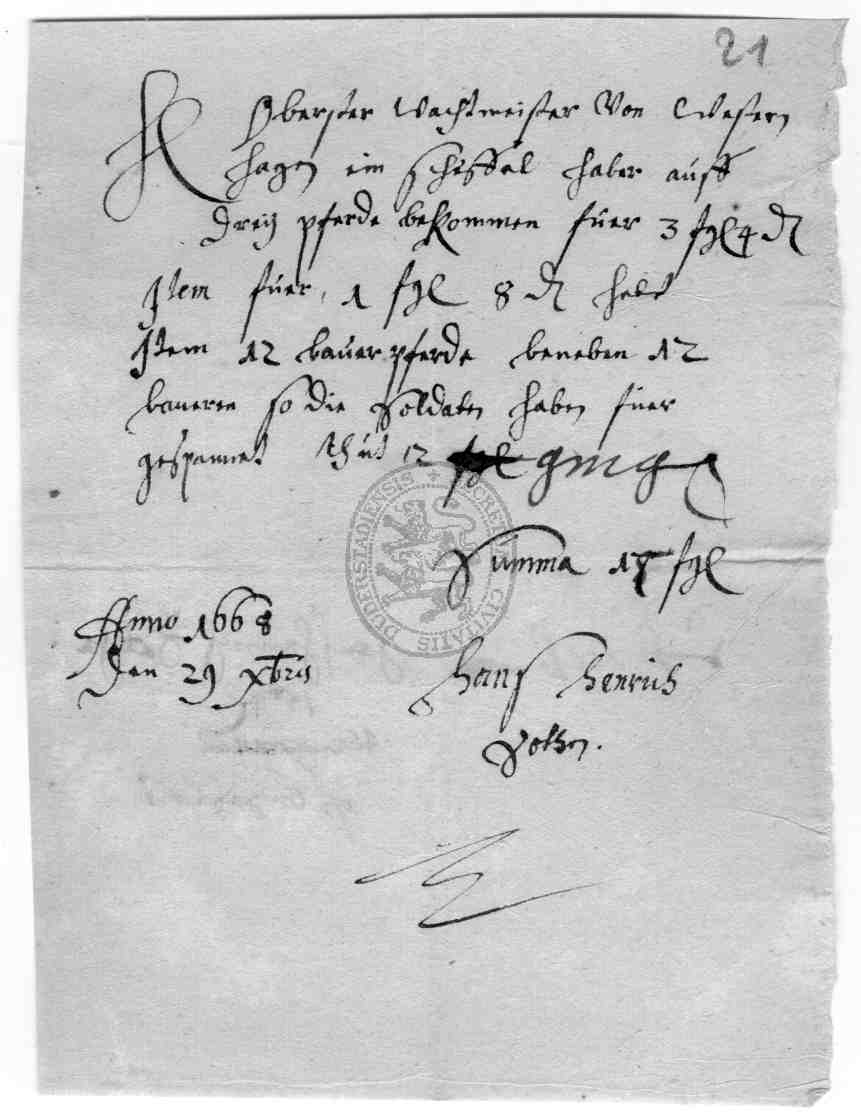 21
H Oberster Wachtmeister Von Western
hagen ein scheffel haber auff
dreÿ pferde bekommen fuer 3 fgl 4 d
Item fuer 1 fgl 8 d
Item 12 bauer pferde beneben 12
baueren so die Soldaten haben fuer
gespannet thut 12 gmg
Summa 17 fgl
Anno 1668
Den 29 Xbris
Hans Henrich
SECRETUM CIVITALIS DUDERSTADIENSIS